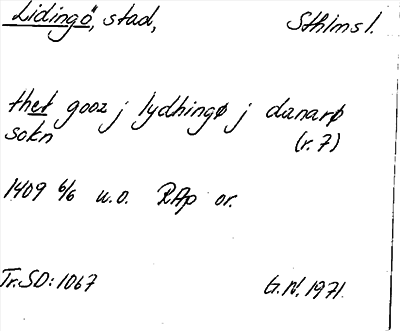 Lidingö, stad, Sthlms l.
thet gooz j lydhingø j danarø
sokn (r. 7)
1409 6/6 u.o. RAp or.
Tr. SD: 1067 G.W. 1971